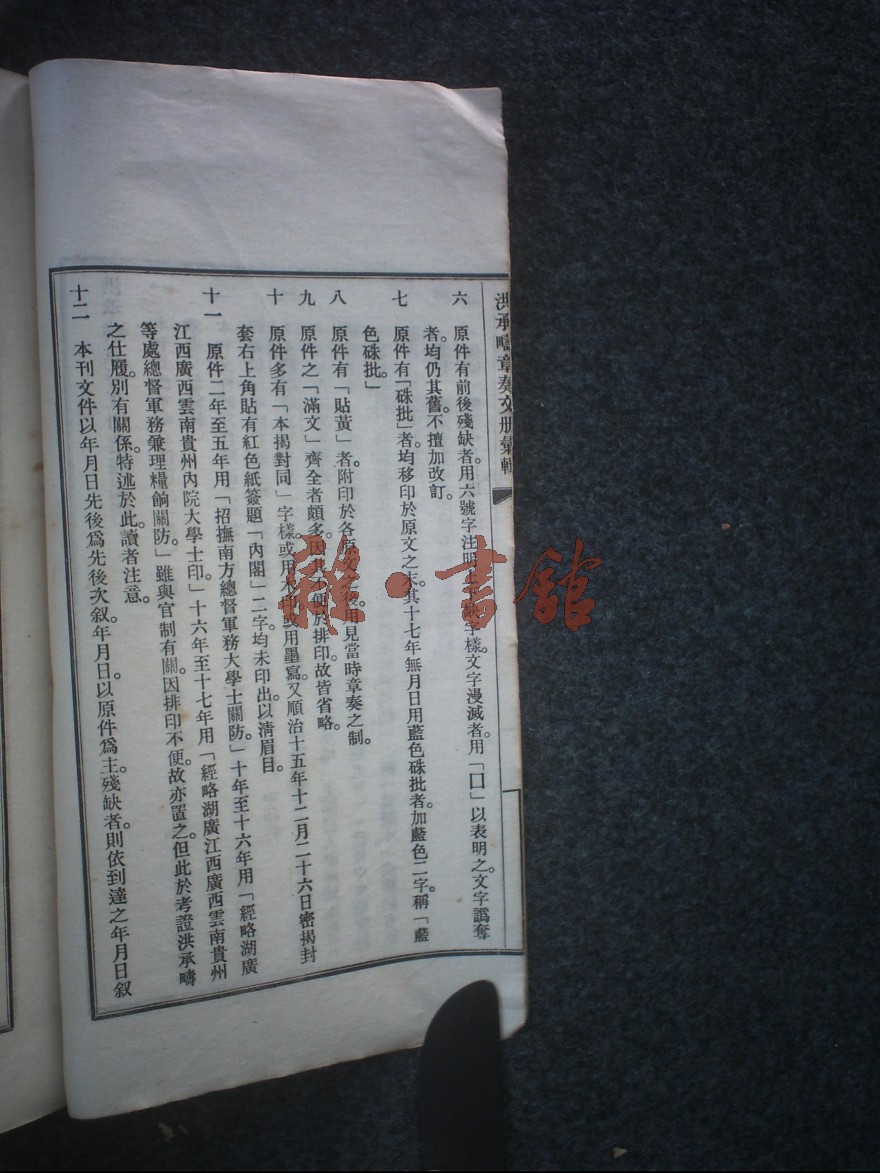 洪承疇章奏文册彙輯
六　原件有前後殘缺者。用六號字注明上下缺字樣。文字漫滅者。用「囗」以表明之。文字譌奪
者。均仍其舊。不擅加改訂。
七　原件有「硃批」者。均移印於原文之末。其十七年無月日用藍色硃批者。加藍色二字。稱「藍
色硃批」
八　原件有「貼黃」者。附印於各原文之後。用見當時章奏之制。
九　原件之「滿文」齊全者頗多。因其不便於排印。故皆省略。
十　原件多有「本揭對同」字樣。或用木印。或用墨寫。又順治十五年十二月二十六日密揭封
套右上角貼有紅色紙簽題「內閣」二字。均未印出。以清眉目。
十一　原件二年至五年用「招撫南方總督軍務大學士關防。」十年至十六年用「經略湖廣
江西廣西雲南貴州內院大學士印。」十六年至十七年用「經略湖廣江西廣西雲南貴州
等處總督軍務兼理糧餉關防。」雖與官制有關。因排印不便。故亦置之。但此於考證洪承疇
之仕履。別有關係。特述於此。讀者注意。
十二　本刊文件以年月日先後為先後次叙。年月日以原件為主。殘缺者。則依到達之年月日叙
雜·書館